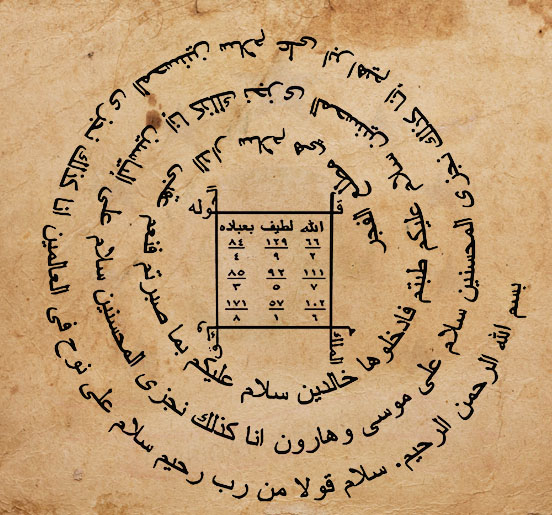 بسم الله الرحمن الرحيم. سلام قولا من رب رحيم سلام على نوح فى العالمين انا كذلك نجزى المحسنين سلام على ابراهيم إنا كذلك نجزى المحسنين سلام على موسى وهارون انا كذلك نجزى المحسنين سلام على إلياسين إنا كذلك نجزى المحسنين سلام عليكم طبتم فادخلوها خالدين سلام عليكم بما صبرتم فنعم عقبى الدار سلام هى مطلع الفجر
الله لطيف بعباده
٦٦ ١٢٩ ٨٤
٢ ٩ ٤
١١١ ٩٢ ٨٥
٧ ٥ ٣
١٠٢ ٥٧ ١٧١
٦ ١ ٨
الملك